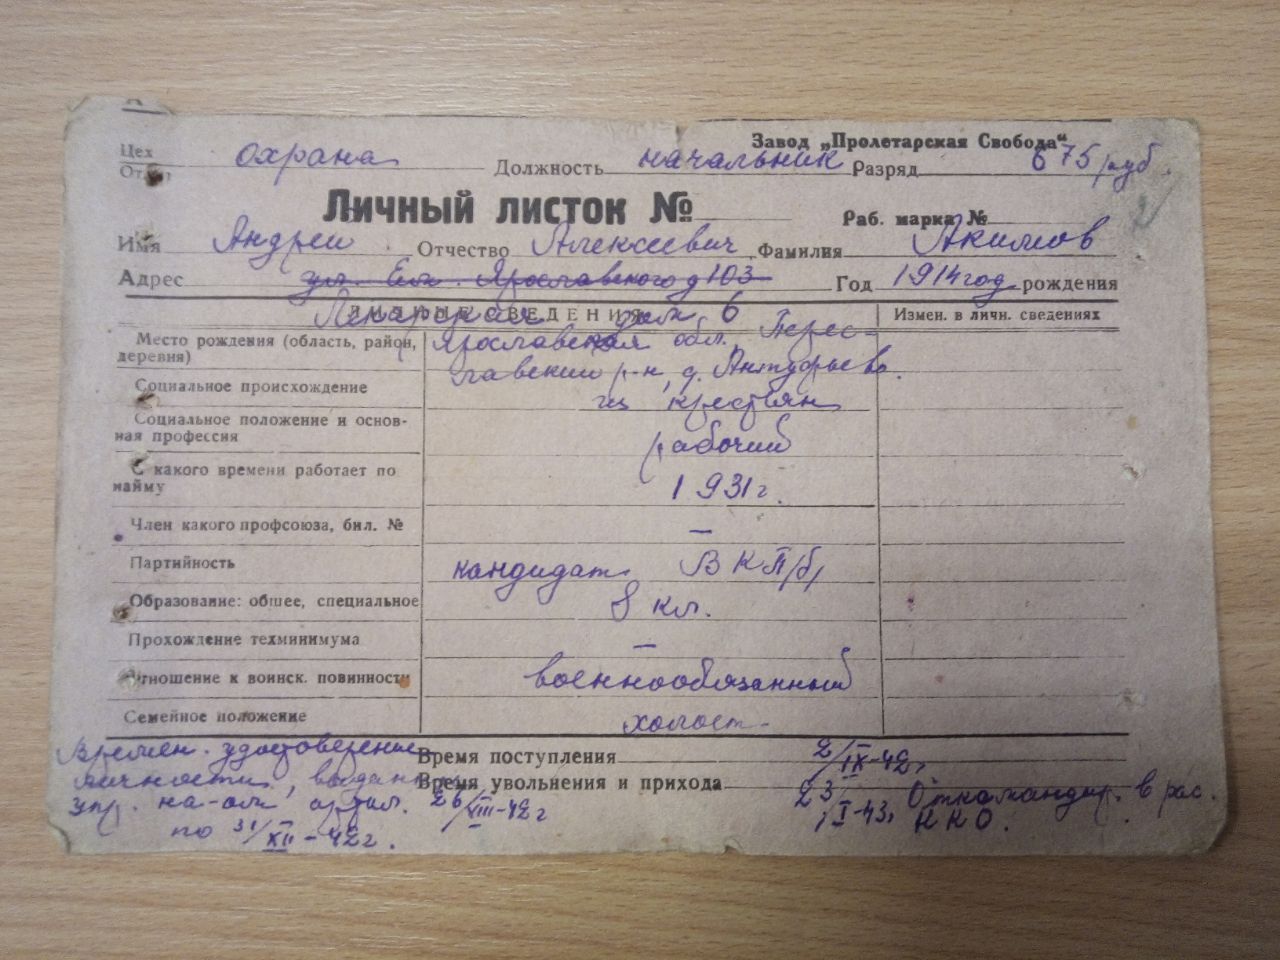 Завод „Пролетарская Свобода“
Цех охрана Должность начальник Разряд 675 руб.
Отдел
Личный листок №
Раб. марка №
Имя Андрей Отчество Алексеевич Фамилия Акимов
Адрес ул. Ем. Ярославского д 103 Год 1914 год рождения
дом 6
ЛИЧНЫЕ СВЕДЕНИЯ Измен. в личн. сведениях
Место рождения (область, район, деревня) Ярославская обл., Перес-
лавский р-н, д.
Социальное происхождение из крестьян
Социальное положение и основ-
ная профессия рабочий
С какого времени работает по
найму 1931 г.
Член какого профсоюза, бил. № —
Партийность кандидат ВКП/б/
Образование: общее, специальное 8 кл.
Прохождение техминимума —
Отношение к воинск. повинности военнообязанный
Семейное положение холост
Времен. удостоверение
личности, выдан
упр. 26/VIII-42 г
по 31/XII-42 г.
Время поступления 2/IX-42,
Время увольнения и прихода 23/I-43, Откомандир. в рас.
НКО.